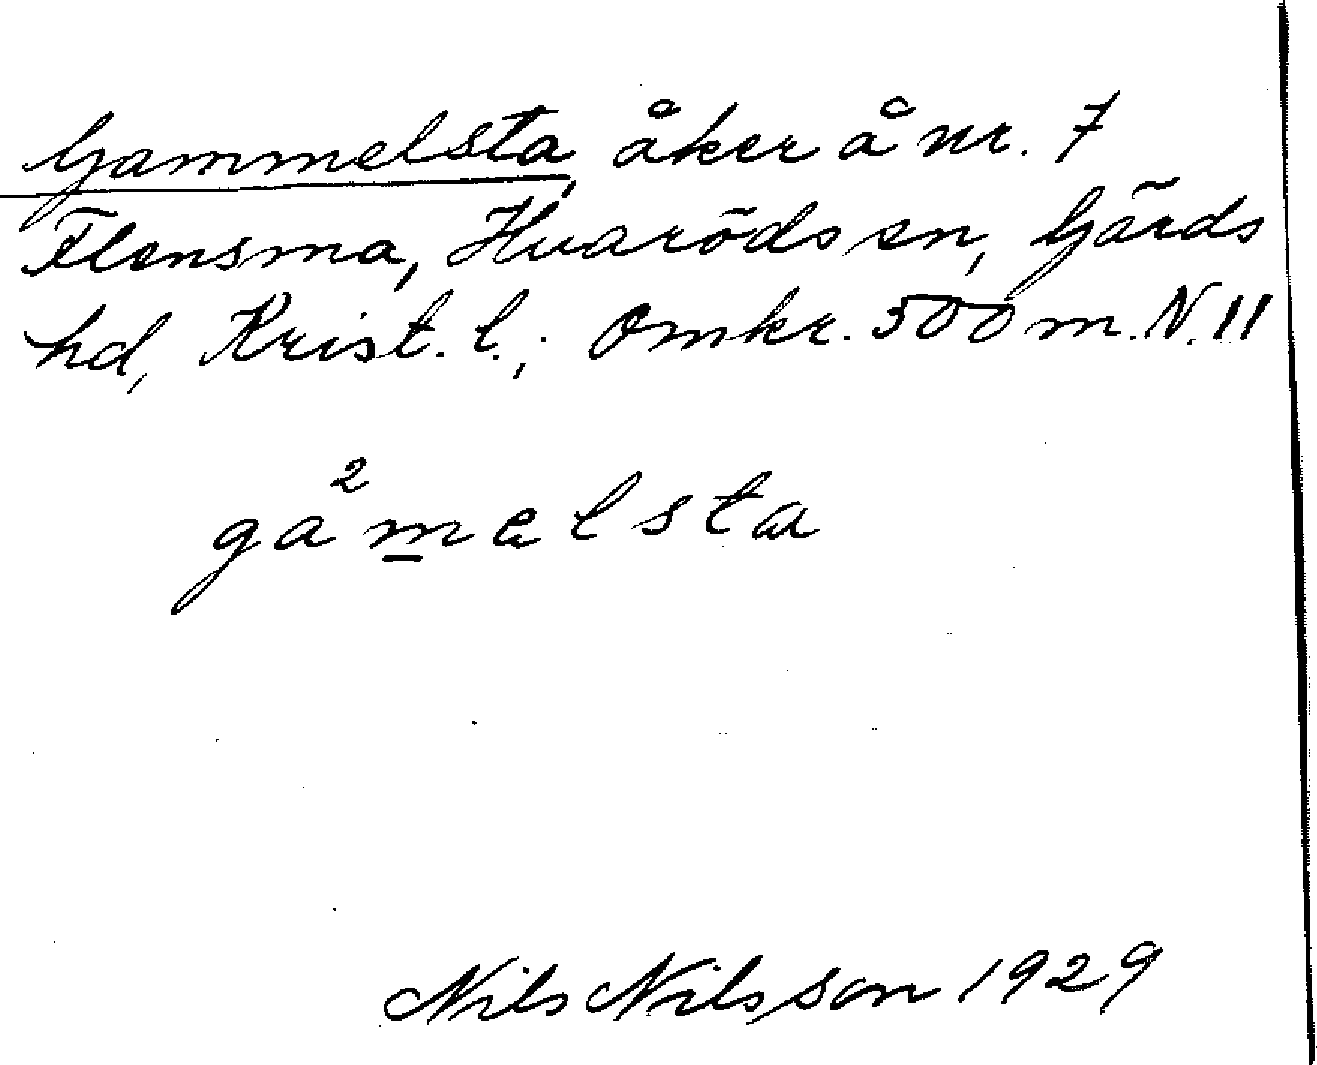 Gammelsta, åker å nr. 7
Flensma, Huaröds sn, Gärds
hd, Krist. l.; Omkr. 500 m. N. 11
ga²m̲elsta
Nils Nilsson 1929